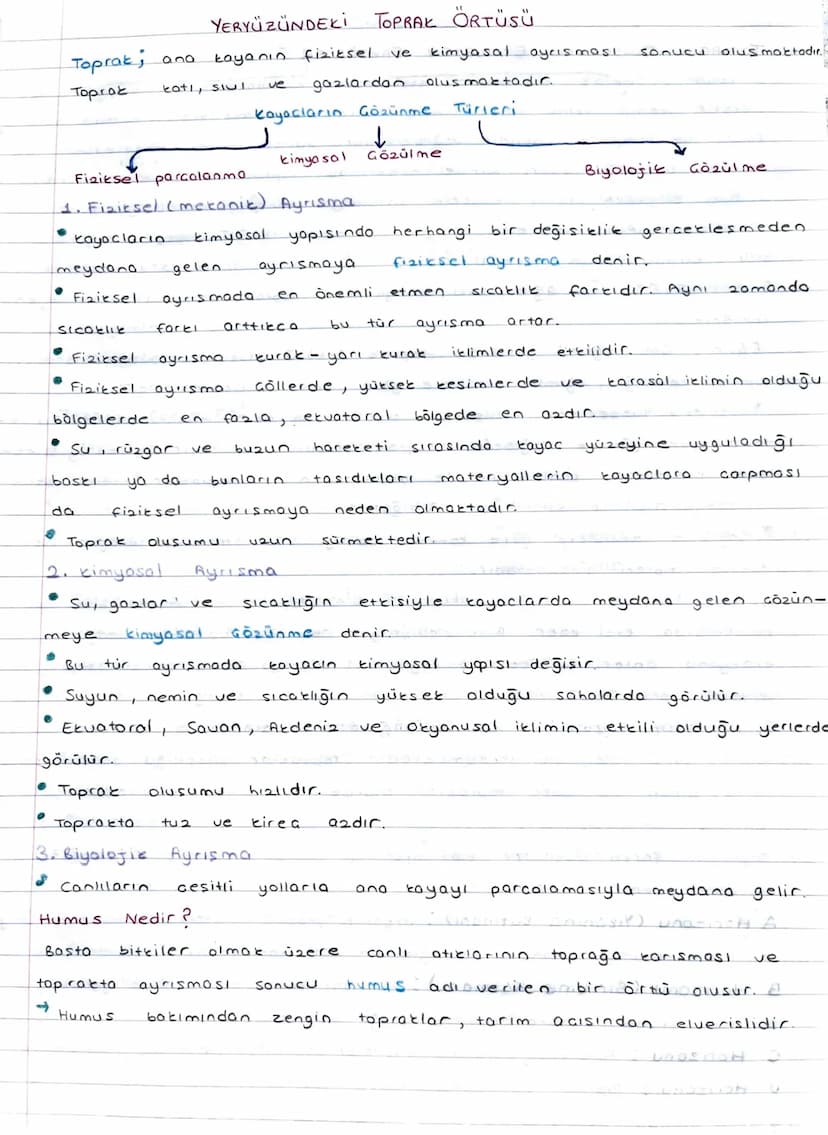 YERYÜZÜNDEKİ TOPRAK ÖRTÜSÜ
Toprak; ana kayanın fiziksel ve kimyasal ayrısması sonucu olusmaktadır.
Toprak katı, sıvı ve gazlardan olusmaktadır.
Kayacların Çözünme Türleri
Fiziksel parcalanma kimyasal Çözülme Biyolojik Çözülme
1. Fiziksel (mekanik) Ayrısma
• kayacların kimyasal yapısında herhangi bir değisiklik gerceklesmeden
meydana gelen ayrısmaya fiziksel ayrısma denir.
• Fiziksel ayrısmada en önemli etmen sıcaklık farkıdır. Aynı zamanda
sıcaklık farkı arttıkca bu tür ayrısma artar.
• Fiziksel ayrısma kurak-yarı kurak iklimlerde etkilidir.
• Fiziksel ayrısma Çöllerde, yüksek kesimlerde ve karasal iklimin olduğu
bölgelerde en fazla, ekvatoral bölgede en azdır.
• Su, rüzgar ve buzun hareketi sırasında kayac yüzeyine uyguladığı
baskı ya da bunların tasıdıkları materyallerin kayaclara carpması
da fiziksel ayrısmaya neden olmaktadır.
• Toprak olusumu uzun sürmektedir.
2. kimyasal Ayrısma
• Su, gazlar ve sıcaklığın etkisiyle kayaclarda meydana gelen cözün-
meye kimyasal Çözünme denir.
• Bu tür ayrısmada kayacın kimyasal yapısı değisir.
• Suyun, nemin ve sıcaklığın yüksek olduğu sahalarda görülür.
• Ekvatoral, Savan, Akdeniz ve Okyanusal iklimin etkili olduğu yerlerde
görülür.
• Toprak olusumu hızlıdır.
• Toprakta tuz ve kirec azdır.
3. Biyolojik Ayrısma
• Canlıların cesitli yollarla ana kayayı parcalamasıyla meydana gelir.
Humus Nedir?
Basta bitkiler olmak üzere canlı atıklarının toprağa karısması ve
toprakta ayrısması sonucu humus adı verilen bir örtü olusur.
→ Humus bakımından zengin topraklar, tarım acısından elverislidir.